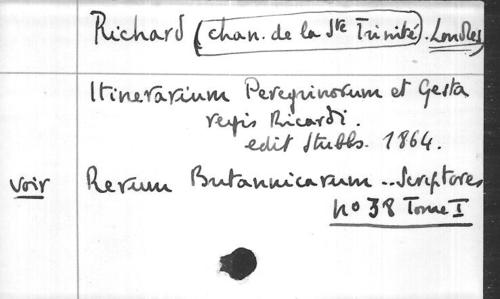 Richard (chan. de la Ste Trinité). Londres
Itinerarium Peregrinorum et Gesta
regis Ricardi.
edit Stubbs. 1864.
voir Rerum Britannicarum .. Scriptores
no 38 Tome I